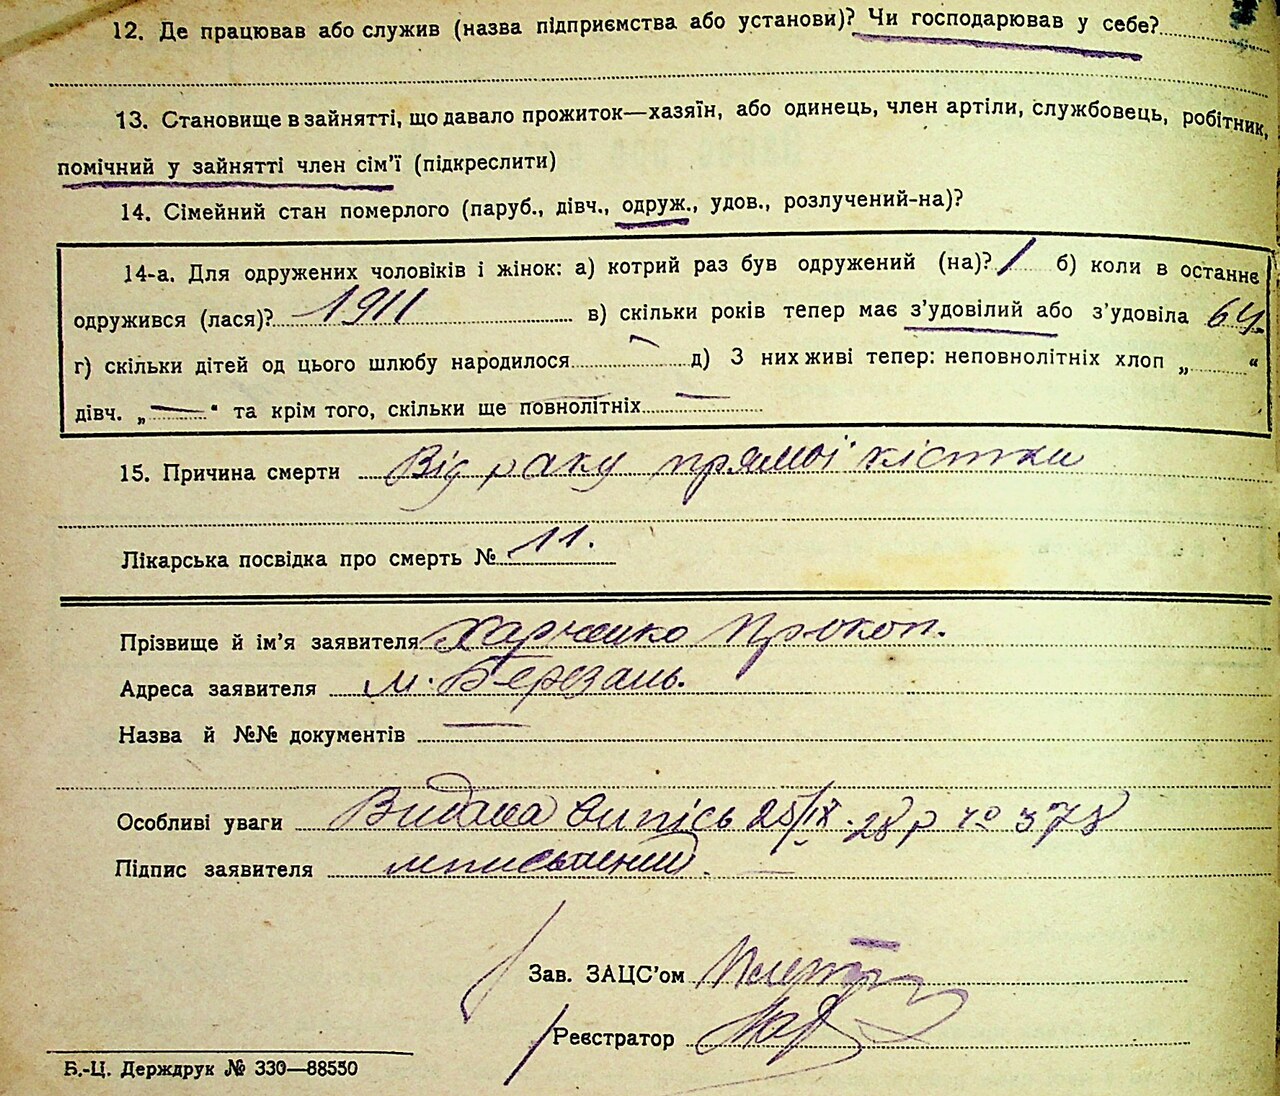 12. Де працював або служив (назва підприємства або установи)? Чи господарював у себе?
13. Становище в зайнятті, що давало прожиток—хазяїн, або одинець, член артіли, службовець, робітник,
помічний у зайнятті член сім'ї (підкреслити)
14. Сімейний стан померлого (паруб., дівч., одруж., удов., розлучений-на)?
14-а. Для одружених чоловіків і жінок: а) котрий раз був одружений (на)? 1 б) коли в останнє
одружився (лася)? 1911 в) скільки років тепер має з'удовілий або з'удовіла 64
г) скільки дітей од цього шлюбу народилося — д) З них живі тепер: неповнолітніх хлоп „ “
дівч. „—“ та крім того, скільки ще повнолітніх —
15. Причина смерти Від раку прямої кістки
Лікарська посвідка про смерть № 11.
Прізвище й ім'я заявителя Харченко Прокоп.
Адреса заявителя м. Березань.
Назва й №№ документів —
Особливі уваги Видана випісь 25/IX-28 р чо 378
Підпис заявителя
Зав. ЗАЦС'ом
Реєстратор
Б.-Ц. Держдрук № 330—88550